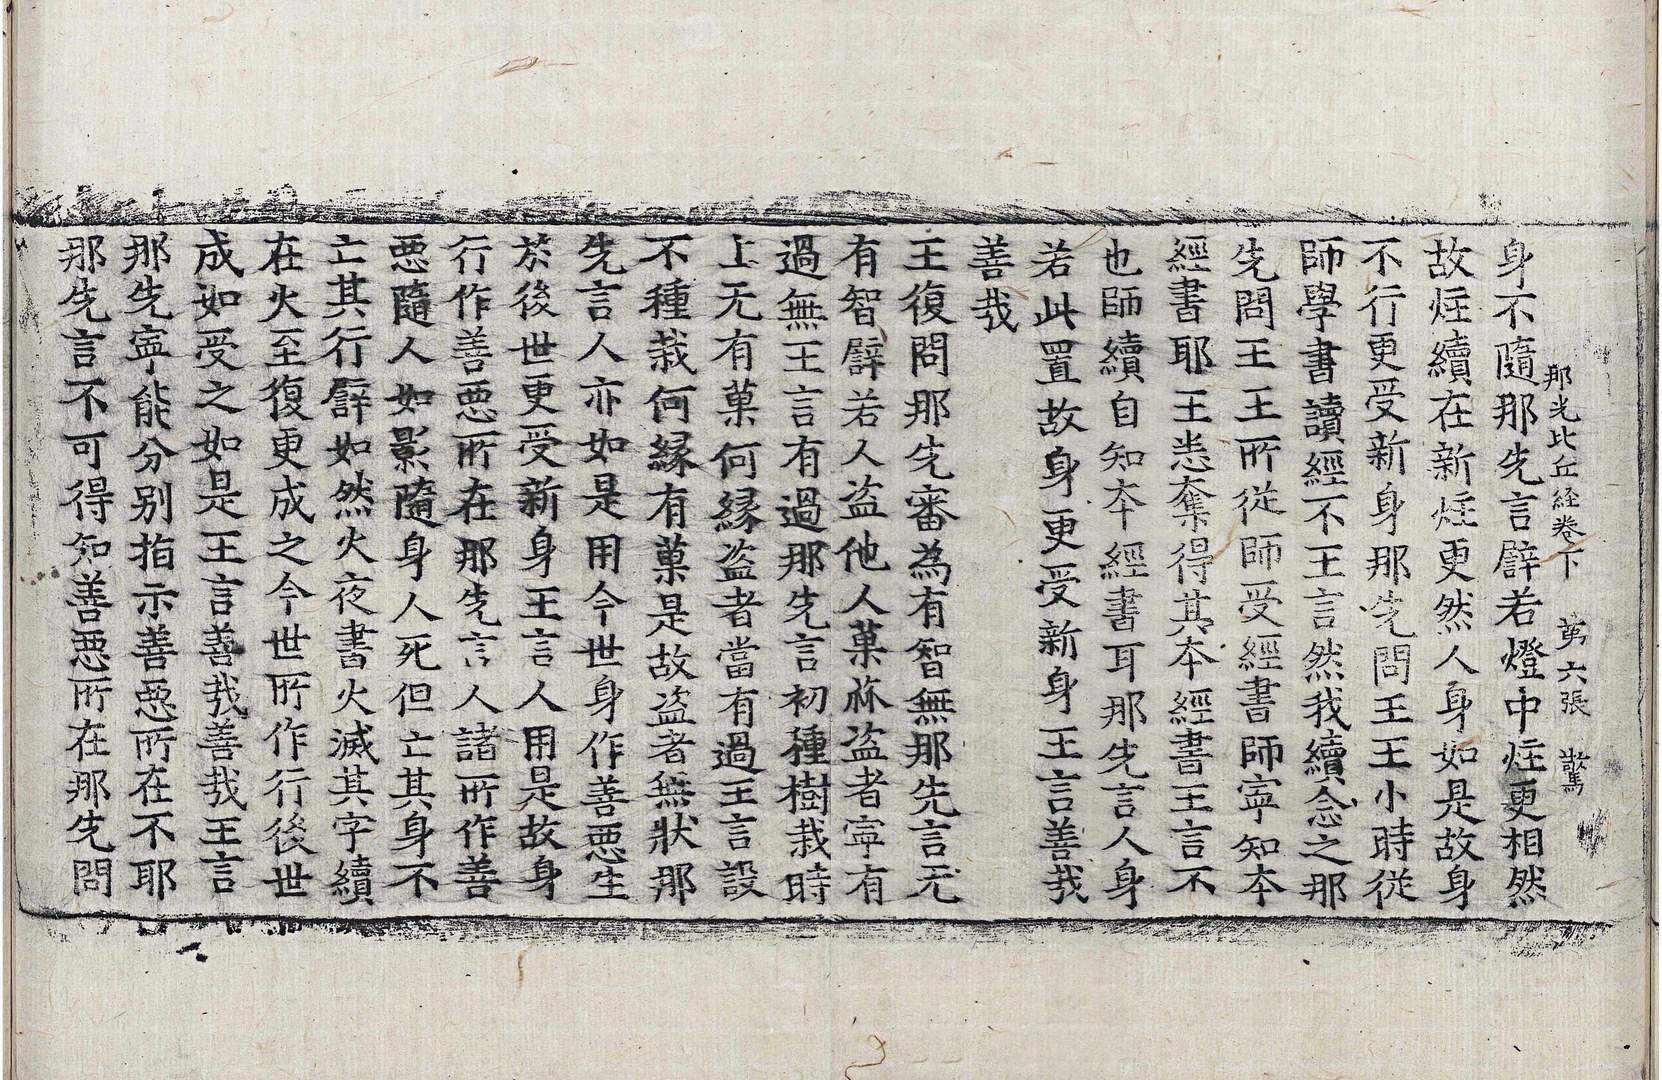 那先比丘経卷下 苐六張 驚
身不隨那先言譬若燈中炷更相然
故炷續在新炷更然人身如是故身
不行更受新身那先問王王小時從
師學書讀經不王言然我續念之那
先問王王所從師受經書師寧知本
經書耶王悉奪得其本經書王言不
也師續自知本經書耳那先言人身
若此置故身更受新身王言善哉
善哉
王復問那先審為有智無那先言无
有智譬若人盜他人菓蓏盜者寧有
過無王言有過那先言初種樹栽時
上无有菓何縁盜者當有過王言設
不種栽何縁有菓是故盜者無狀那
先言人亦如是用今世身作善惡生
於後世更受新身王言人用是故身
行作善惡所在那先言人諸所作善
惡隨人如影隨身人死但亡其身不
亡其行譬如然火夜書火滅其字續
在火至復更成之今世所作行後世
成如受之如是王言善哉善哉王言
那先寧能分別指示善惡所在不耶
那先言不可得知善惡所在那先問